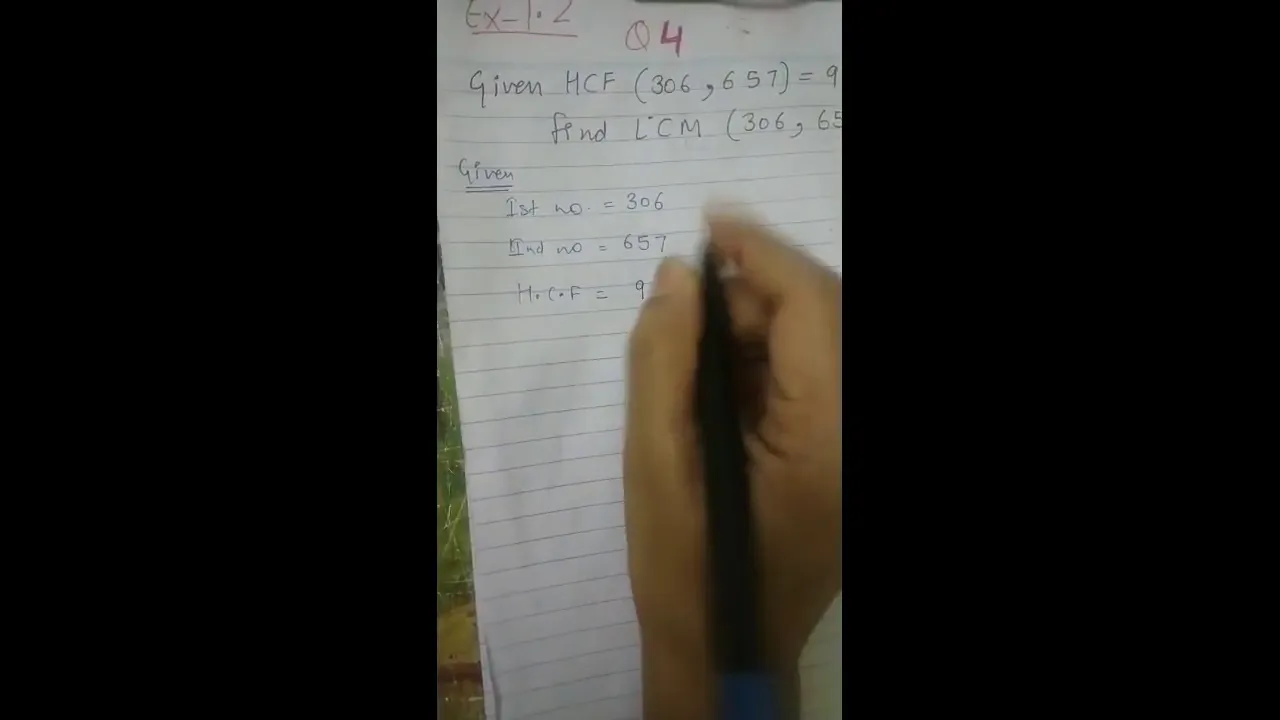 Ex-1.2
Q4
Given HCF (306, 657) = 9
find LCM (306, 65
Given
Ist no. = 306
IInd no = 657
H.C.F = 9